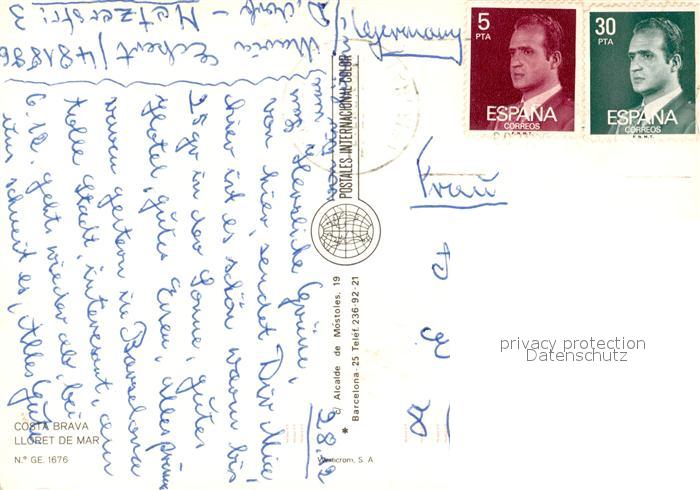 28.12
Herzliche Grüße,
von hier, sendet Dir Mia
hier ist es schön warm bis
25 gr in der Sonne, gutes
Hotel, gutes Essen, alles prima
waren gestern in Barcelona
tolle Stadt, interessant, am
6.12. geht wieder ab, bei
schneit es, Alles Gute
Maria Eckert / 481886
Metzerstr. 3
Germany
Frau
5
PTA
ESPAÑA
CORREOS
F.N.M.T.
30
PTA
ESPAÑA
CORREOS
F.N.M.T.
POSTALES-INTERNACIONAL-COLOR
c/ Alcalde de Móstoles, 19
Barcelona-25 Teléf. 236-92-21
privacy protection
Datenschutz
COSTA BRAVA
LLORET DE MAR
N.º GE. 1676
S. A